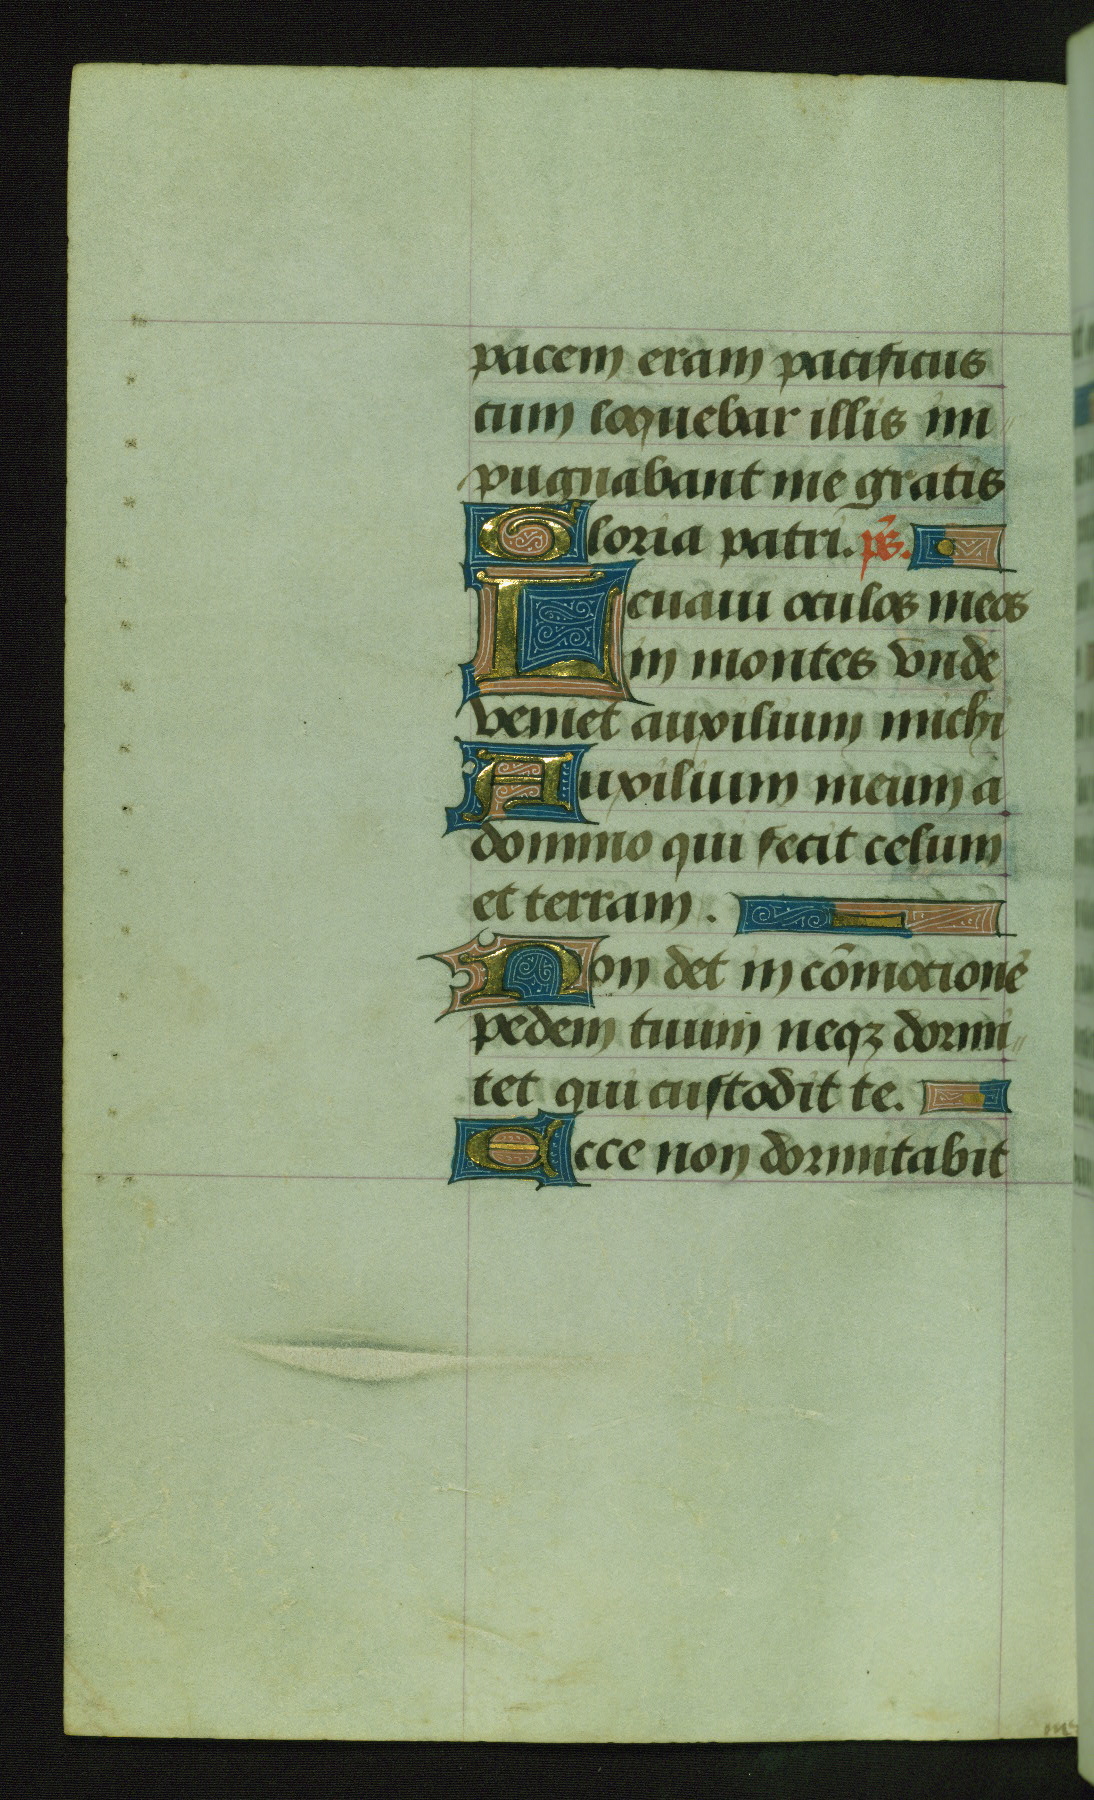 pacem eram pacificus
cum loquebar illis im
pugnabant me gratis
Gloria patri. ps̃.
Leuaui oculos meos
in montes vnde
veniet auxilium michi
Auxilium meum a
domino qui fecit celum
et terram .
Non det in cōmocionē
pedem tuum neqz dormi
tet qui custodit te.
Ecce non dormitabit